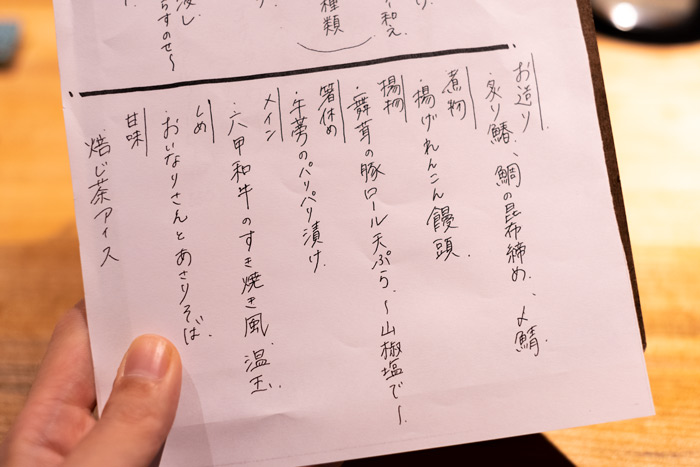 り
和え
種類
浸し
らすのせ〜
お造り
・炙り鰆、鯛の昆布締め、〆鯖
煮物
・揚げれんこん饅頭
揚物
・舞茸の豚ロール天ぷら 〜山椒塩で〜
箸休め
・牛蒡のパリパリ漬け
メイン
・六甲和牛のすき焼き風 温玉
しめ
・おいなりさんとあさりそば
甘味
・焙じ茶アイス